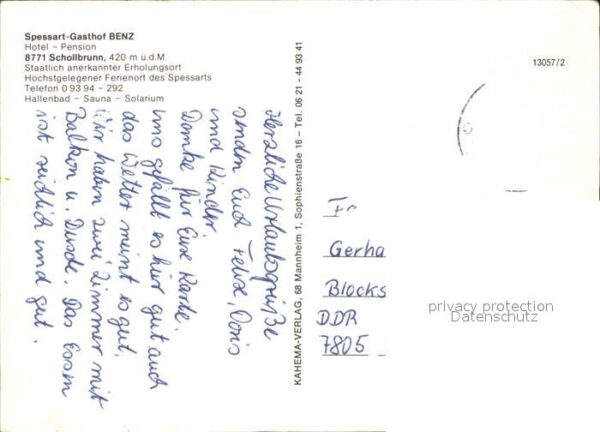 Spessart-Gasthof BENZ
Hotel – Pension
8771 Schollbrunn, 420 m ü.d.M.
Staatlich anerkannter Erholungsort
Höchstgelegener Ferienort des Spessarts
Telefon 0 93 94 – 292
Hallenbad – Sauna – Solarium
13057/2
Herzliche Urlaubsgrüße
senden Euch Felix, Doris
und Kinder.
Danke für Eure Karte.
Uns gefällt es hier gut auch
das Wetter meint es gut.
Wir haben zwei Zimmer mit
Balkon u. Dusche. Das Essen
ist reichlich und gut.
KAHEMA-VERLAG, 68 Mannheim 1, Sophienstraße 16 – Tel. 06 21 - 44 93 41
Gerha
Blocks
DDR
7805
privacy protection
Datenschutz